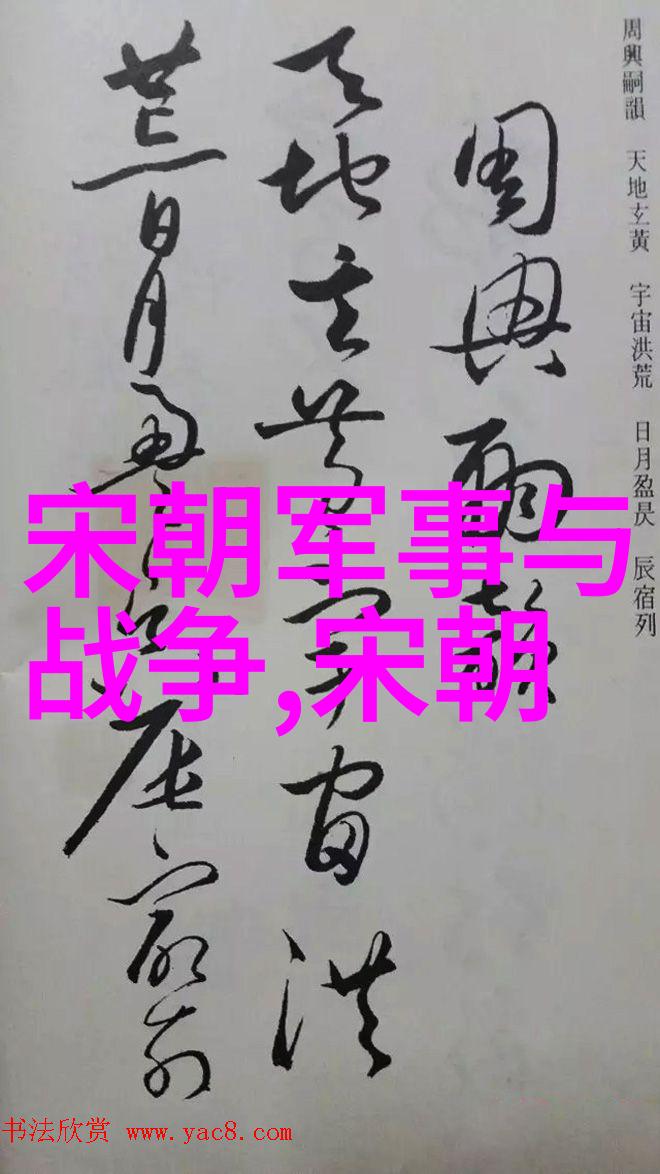 周興嗣韻 天地玄黃 宇宙洪荒 日月盈昃 辰宿列
周興嗣韻
天地玄黃宇宙洪
荒日月盈昃辰宿列
宋朝军事与
战争,宋朝
书法欣赏 www.yac8.com